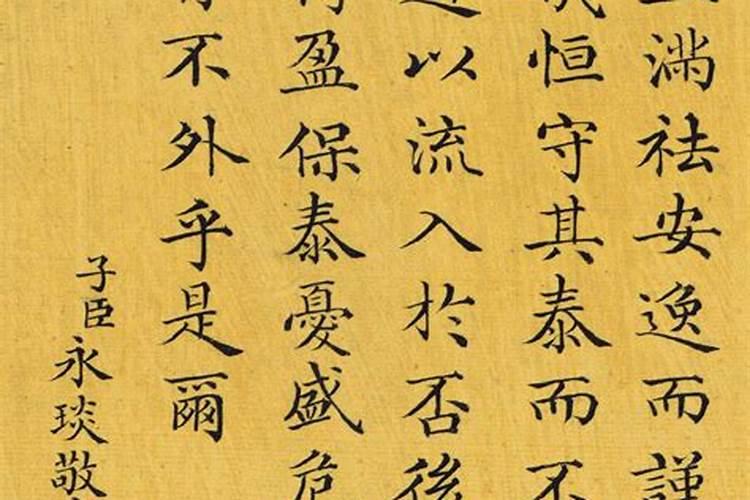 滿祛安逸而謹
恒守其泰而不
以流入於否後
盈保泰憂盛危
不外乎是爾
子臣永琰敬